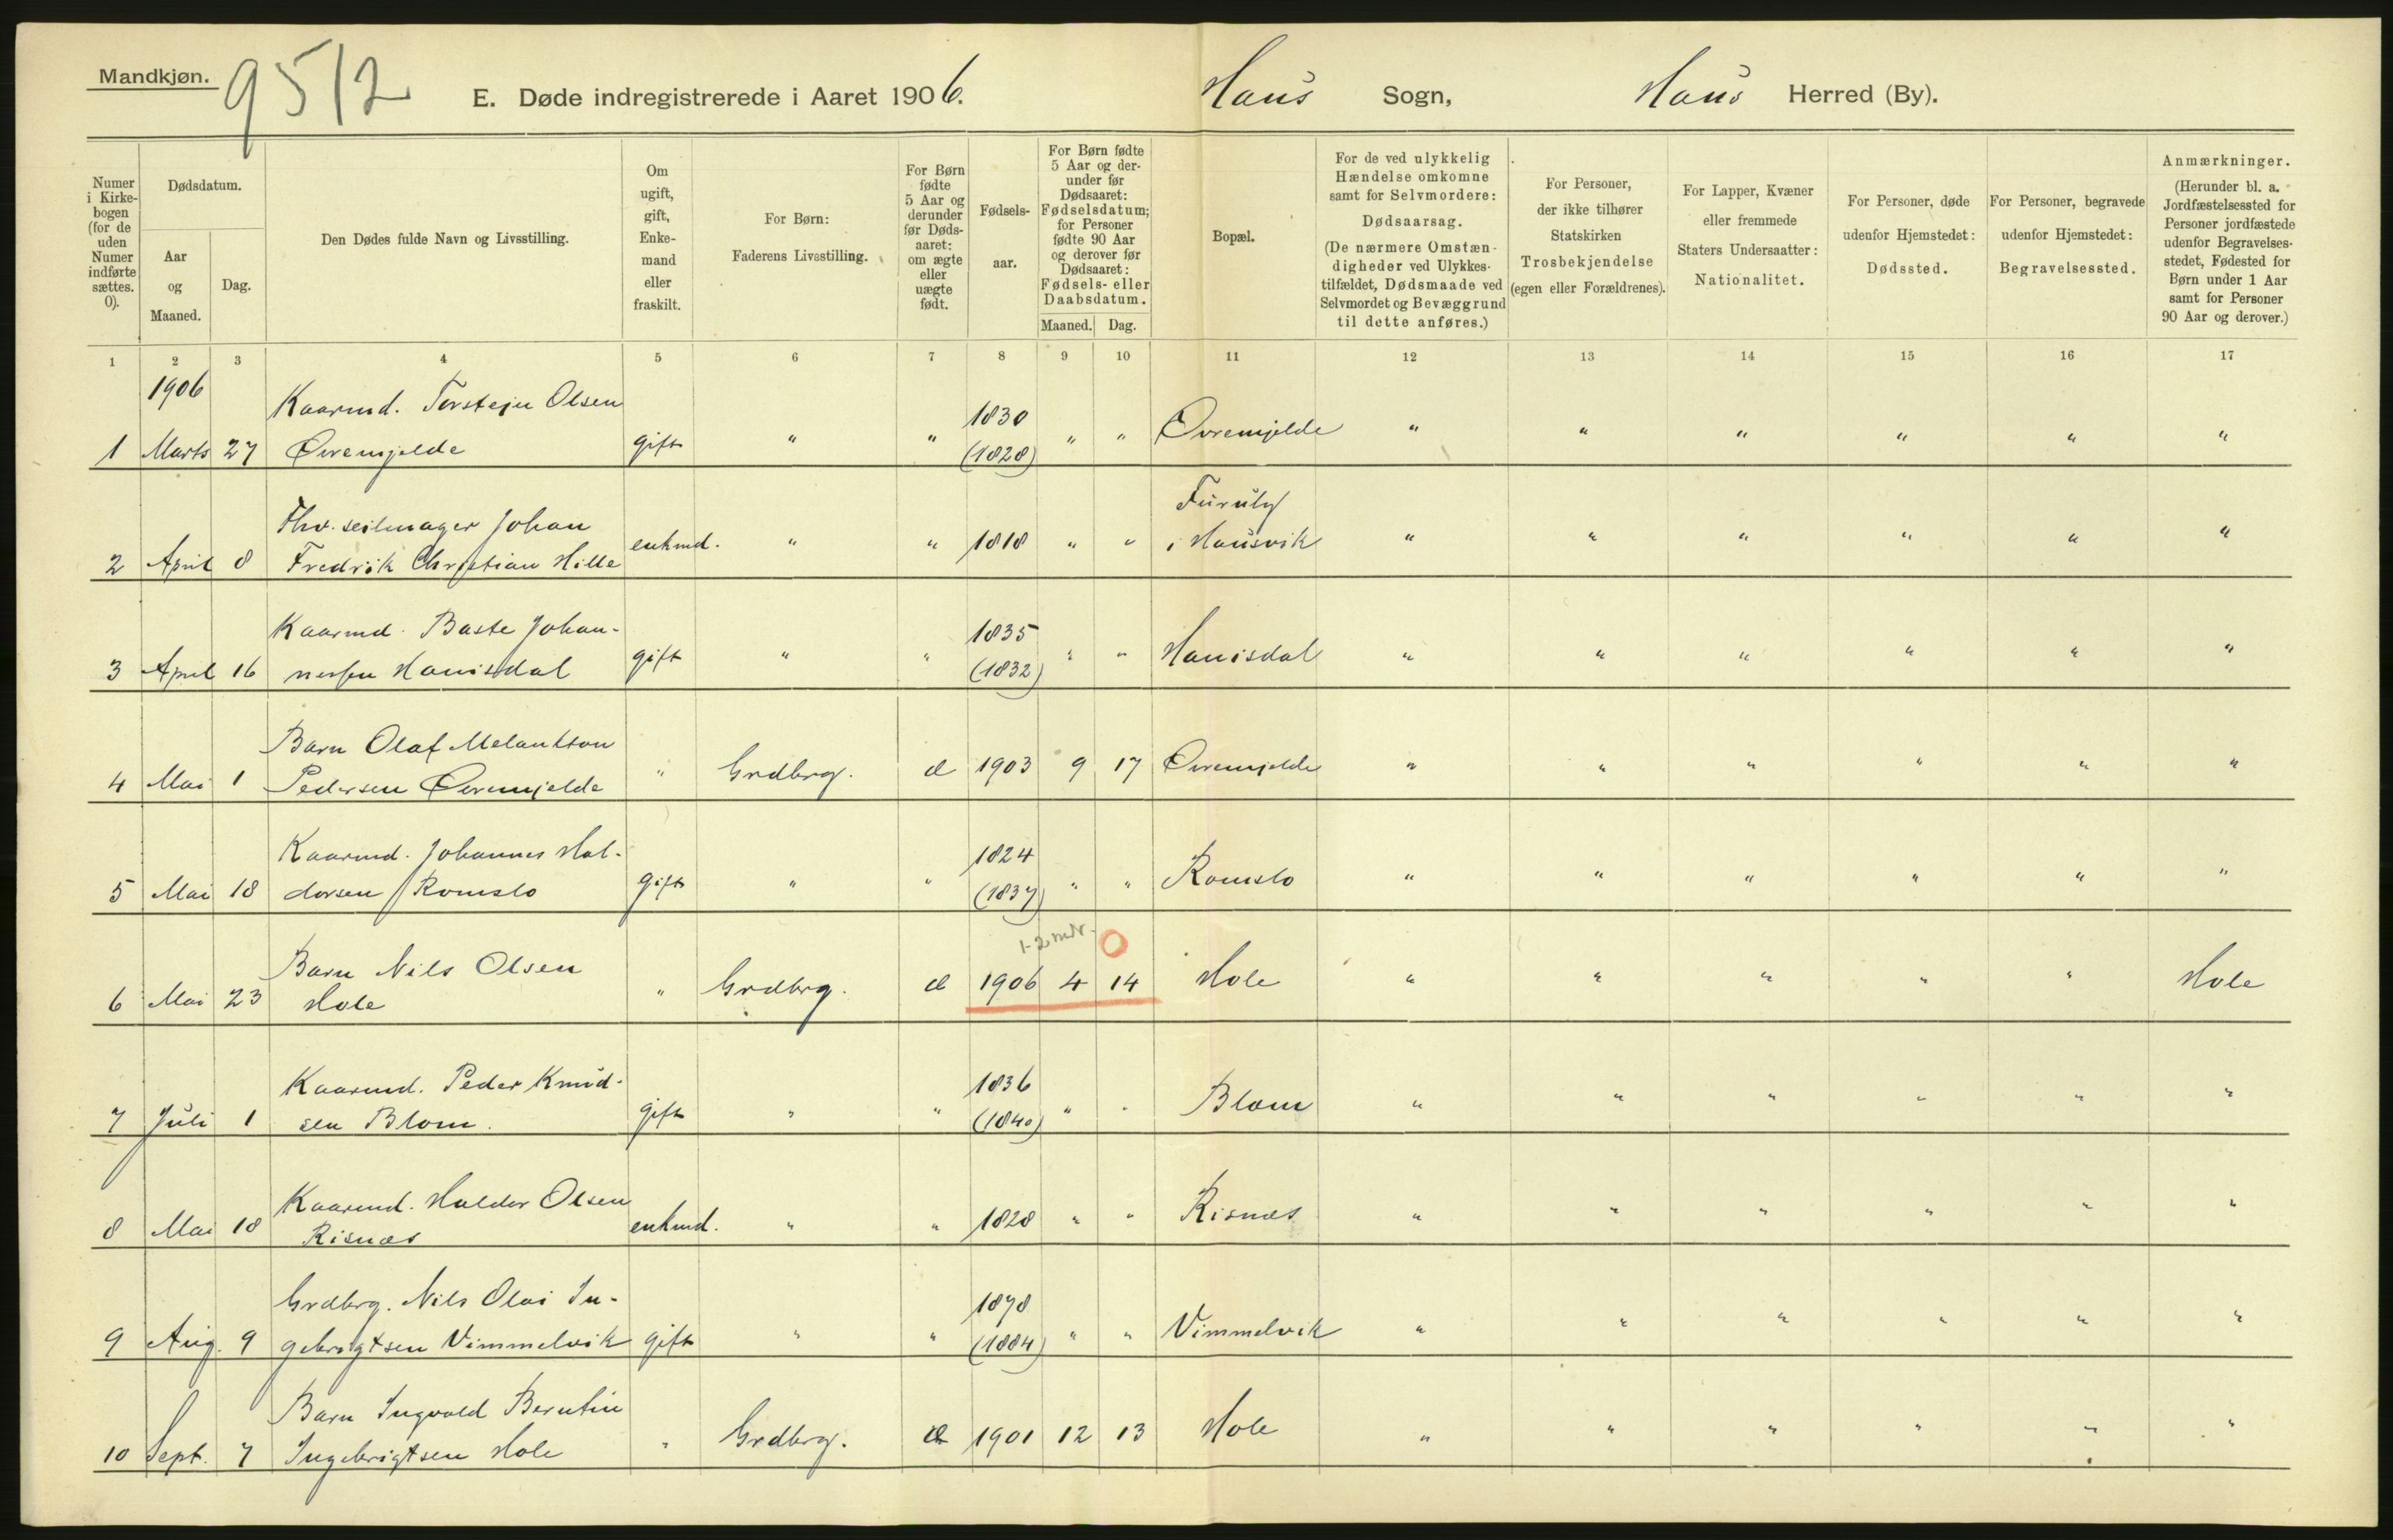 Mandkjøn.
9512
E. Døde indregistrerede i Aaret 1906.
Haus Sogn,
Haus Herred (By).
Numer i Kirkebogen (for de uden Numer indførte sættes. 0).
Dødsdatum.
Aar og Maaned.
Dag.
Den Dødes fulde Navn og Livsstilling.
Om ugift, gift, Enkemand eller fraskilt.
For Børn: Faderens Livsstilling.
For Børn fødte 5 Aar og derunder før Dødsaaret: om ægte eller uægte født.
Fødselsaar.
For Børn fødte 5 Aar og derunder før Dødsaaret: Fødselsdatum; for Personer fødte 90 Aar og derover før Dødsaaret: Fødsels- eller Daabsdatum.
Maaned. Dag.
Bopæl.
For de ved ulykkelig Hændelse omkomne samt for Selvmordere: Dødsaarsag. (De nærmere Omstændigheder ved Ulykkestilfældet, Dødsmaade ved Selvmordet og Bevæggrund til dette anføres.)
For Personer, der ikke tilhører Statskirken Trosbekjendelse (egen eller Forældrenes).
For Lapper, Kvæner eller fremmede Staters Undersaatter: Nationalitet.
For Personer, døde udenfor Hjemstedet: Dødssted.
For Personer, begravede udenfor Hjemstedet: Begravelsessted.
Anmærkninger. (Herunder bl. a. Jordfæstelsessted for Personer jordfæstede udenfor Begravelsesstedet, Fødested for Børn under 1 Aar samt for Personer 90 Aar og derover.)
1 2 3 4 5 6 7 8 9 10 11 12 13 14 15 16 17
1906
Kaarmd. Torstein Olsen 1830
1 Marts 27 Øvremjelde gift " " (1828) " " Øvremjelde " " " " " "
Fhv. seilmager Johan Furuly
2 April 8 Fredrik Christian Hille enkmd. " " 1818 " " i Hausvik " " " " " "
Kaarmd. Baste Johan- 1835
3 April 16 nessen Hauisdal gift " " (1832) " " Hauisdal " " " " " "
Barn Olaf Melankton
4 Mai 1 Pedersen Øvremjelde " Grdbrg. æ 1903 9 17 Øvremjelde " " " " " "
Kaarmd. Johannes Hal- 1824
5 Mai 18 dorsen Romslo gift " " (1837) " " Romslo " " " " " "
1-2 mdr. 0
Barn Nils Olsen
6 Mai 23 Hole " Grdbrg. æ 1906 4 14 Hole " " " " " Hole
Kaarmd. Peder Knud- 1836
7 Juli 1 sen Blom. gift " " (1840) " " Blom " " " " " "
Kaarmd. Haldor Olsen
8 Mai 18 Risnæs enkmd. " " 1828 " " Risnæs " " " " " "
Grdbrg. Nils Olai In- 1878
9 Aug. 9 gebrigtsen Vimmelvik gift " " (1884) " " Vimmelvik " " " " " "
Barn Ingvald Berntin
10 Sept. 7 Ingebrigtsen Hole " Grdbrg. æ 1901 12 13 Hole " " " " " "